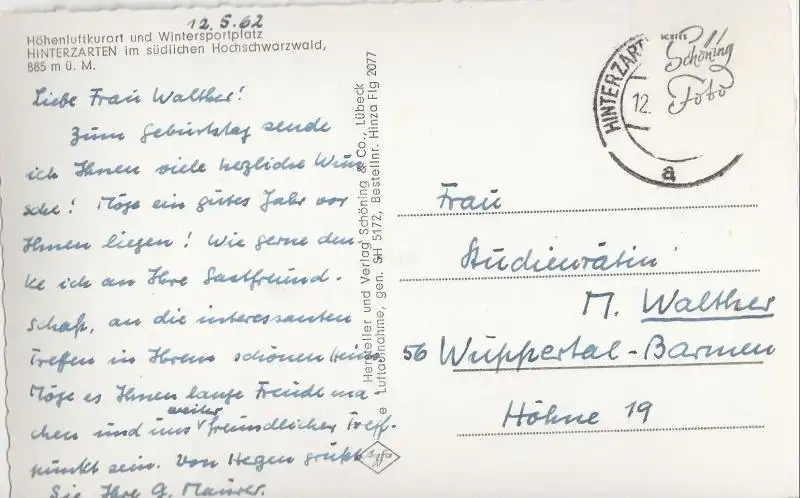 12.5.62
Höhenluftkurort und Wintersportplatz
HINTERZARTEN im südlichen Hochschwarzwald,
885 m ü. M.
Liebe Frau Walther!
Zum Geburtstag sende
ich Ihnen viele herzliche Wün-
sche! Möge ein gutes Jahr vor
Ihnen liegen! Wie gerne den-
ke ich an Ihre Gastfreund-
schaft, an die interessanten
Treffen in Ihrem schönen Heim.
Möge es Ihnen lange Freude ma-
weiter
chen und uns freundlicher Treff-
punkt sein. Von Hegen grüßt
Sie Ihre G. Maurer.
Hersteller und Verlag Schöning & Co., Lübeck
Luftaufnahme, gen. SH 5172, Bestellnr. Hinza Flg 2077
Agfa
HINTERZART
12.
a
Schöning
Foto
Frau
Studienrätin
M. Walther
56 Wuppertal-Barmen
Höhne 19